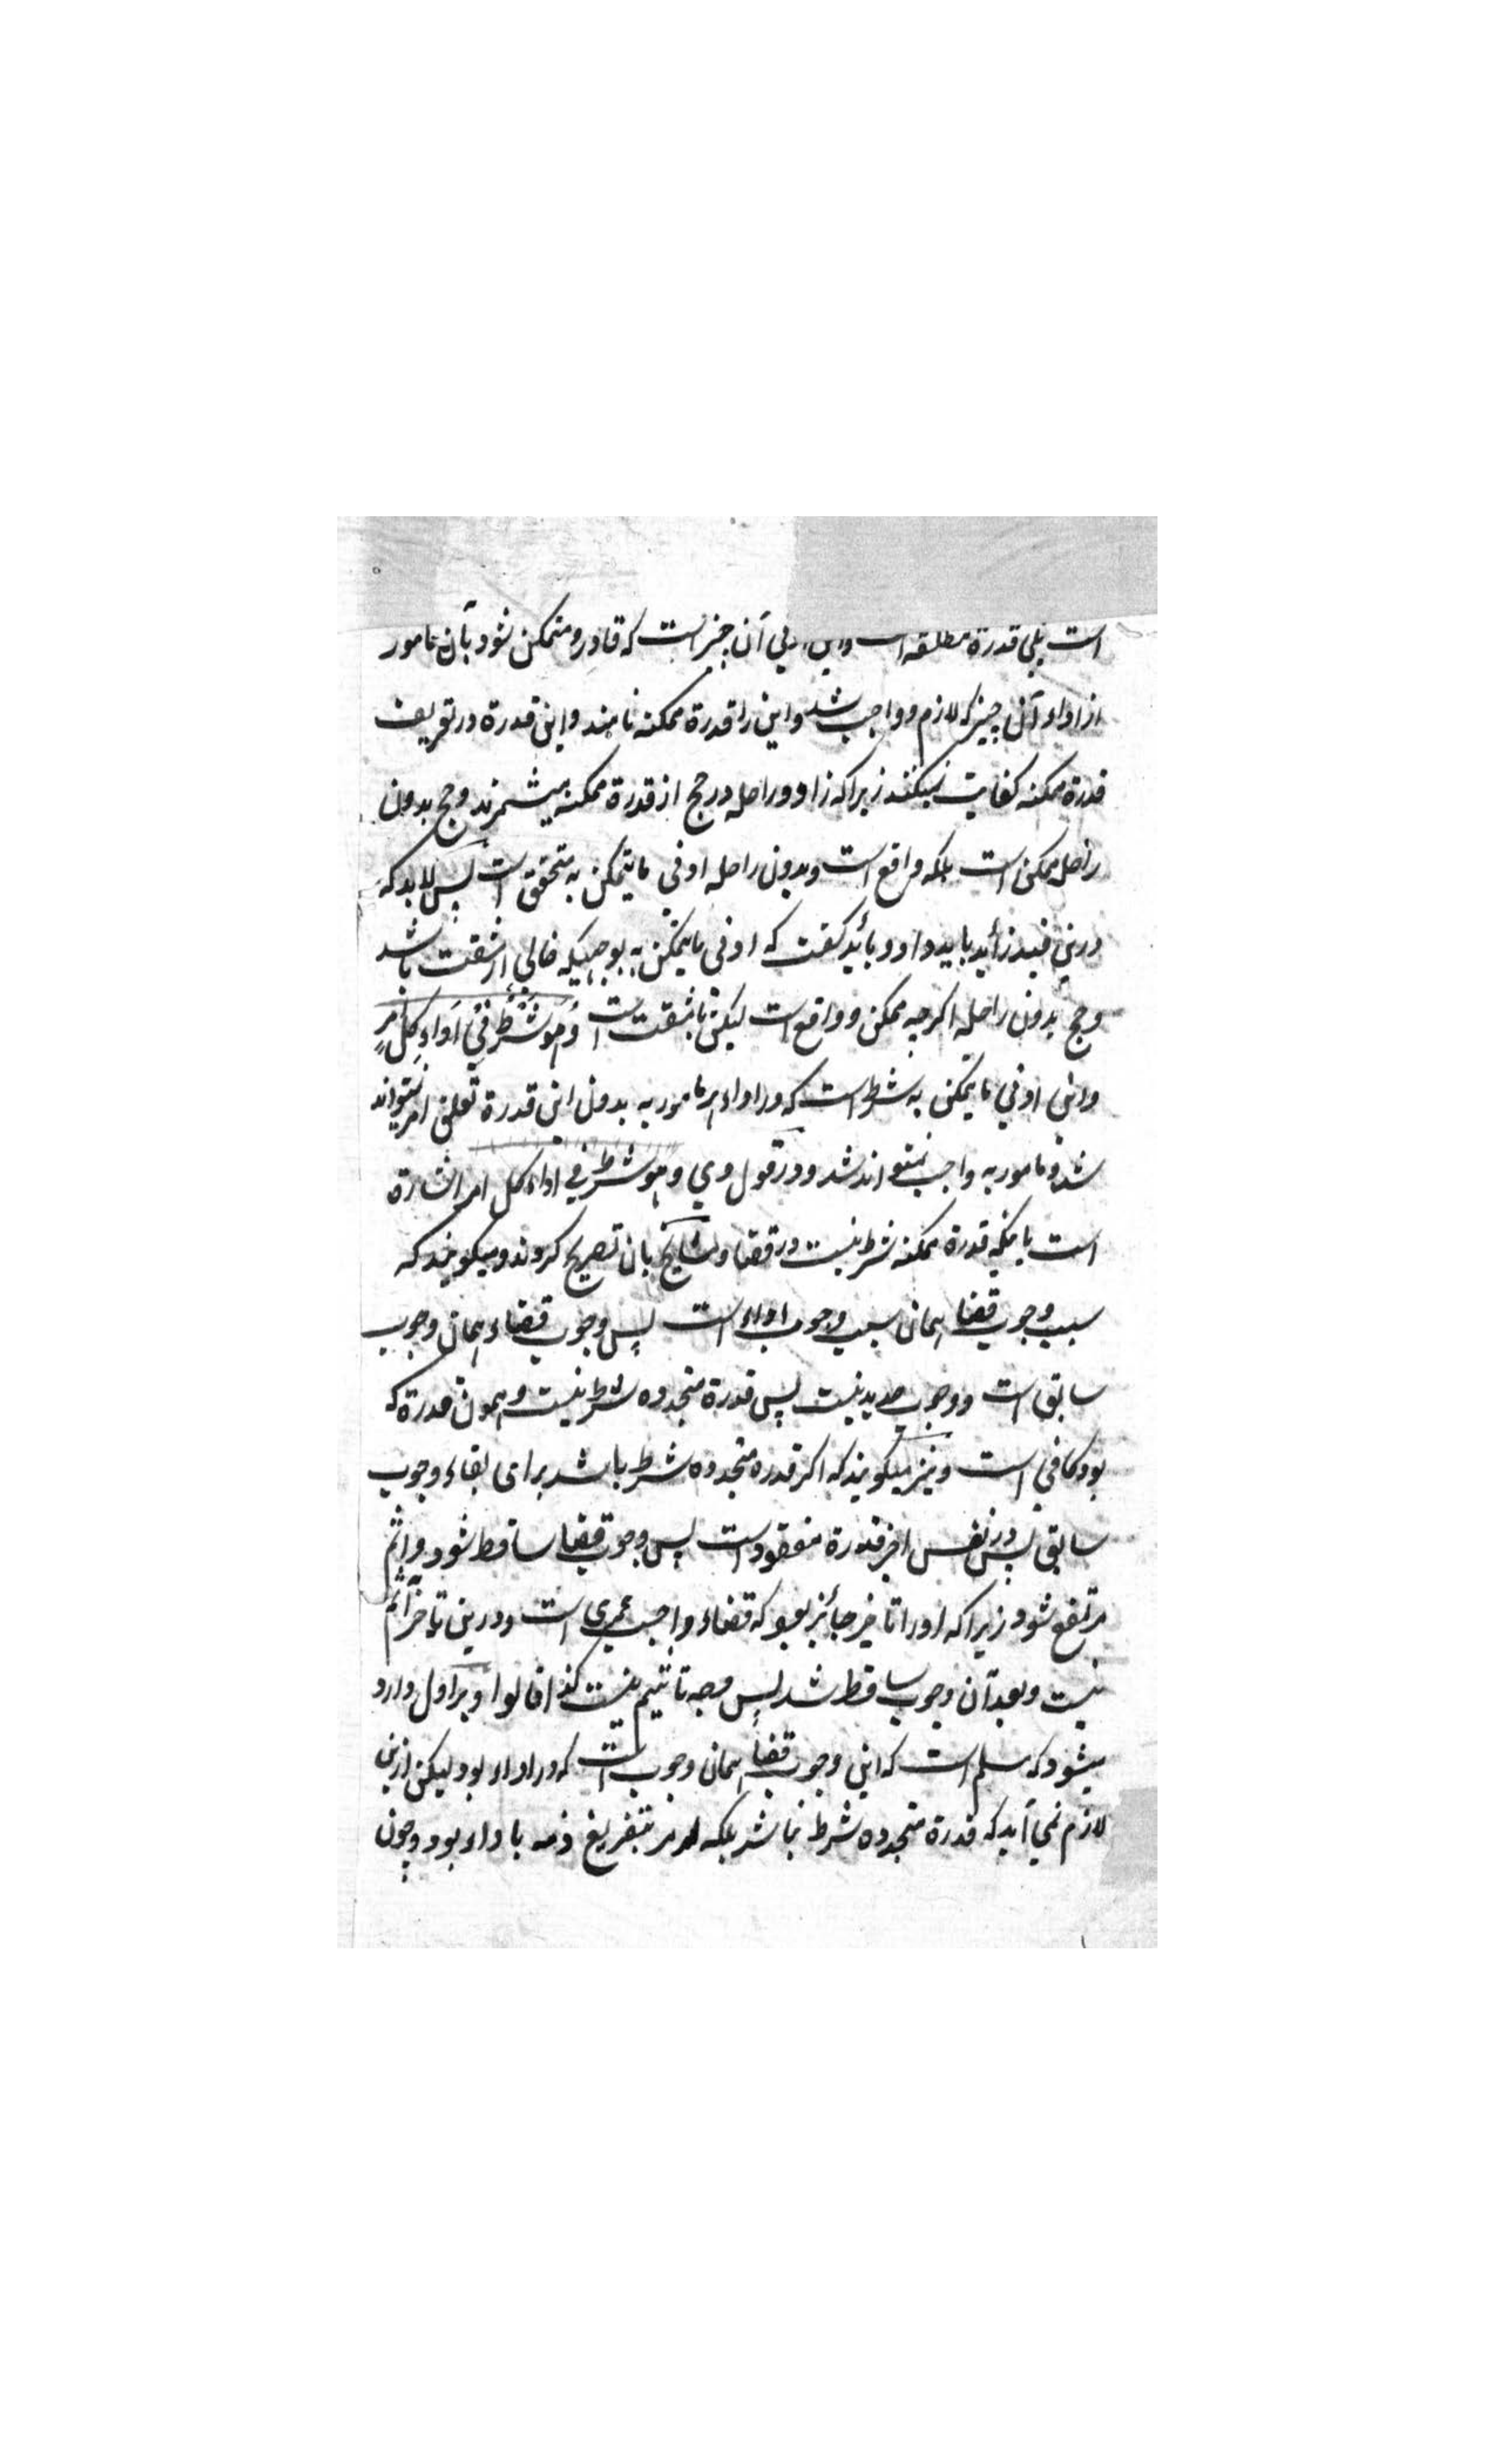 است یکی قدرة مطلقه است و این ادنی آن چیز است که قادر و متمکن شود بآن مامور
از اداء آن چیز که لازم و واجب شد و این را قدرة ممکنه نامند و این قدرة در تعریف
قدرة ممکنه کفایت نمیکند زیرا که زاد و راحله در حج از قدرة ممکنه میشمرند و حج بدون
راحله ممکن است بلکه واقع است و بدون راحله ادنی ما یتمکن به متحقق است پس لابد که
درین قید زائد باید داد و باید کفت که ادنی ما یتمکن به بوجهیکه خالی از مشقت باشد
و حج بدون راحله اکرچه ممکن و واقع است لیکن با مشقت است وَهُوَ شَرْطٌ فِي اَدَاءِ كُلِّ اَمْرٍ
و این ادنی ما یتمکن به شرط است که در اداء هر مامور به بدون این قدرة تعلق امر نتواند
شد و مامور به واجب نتواند شد و در قول وی و هو شرط في اداء كل امر اشارة
است باینکه قدرة ممکنه شرط نیست در قضا و مشایخ بان تصریح کردند و میکویند که
سبب وجوب قضا همان سبب وجوب اداء است پس وجوب قضاء همان وجوب
سابق است و وجوب جدید نیست پس قدرة متجدده شرط نیست و همون قدرة که
بود کافی است و نیز میکویند که اکر قدره متجدده شرط باشد برای بقاء وجوب
سابق پس در نفس اخیر قدرة مفقود است پس وجوب قضا ساقط شود و اثم
مرتفع شود زیرا که او را تاخیر جائز بود که قضاء واجب عمری است و درین تاخیر اثم
نیست و بعد آن وجوب ساقط شد پس وجه تاثیم نیست کذا قالوا و بر اول وارد
میشود که مسلم است که این وجوب قضا همان وجوب است که در اداء بود لیکن ازین
لازم نمی آید که قدرة متجدده شرط نباشد بلکه امر بتفریغ ذمه باداء بود و چون